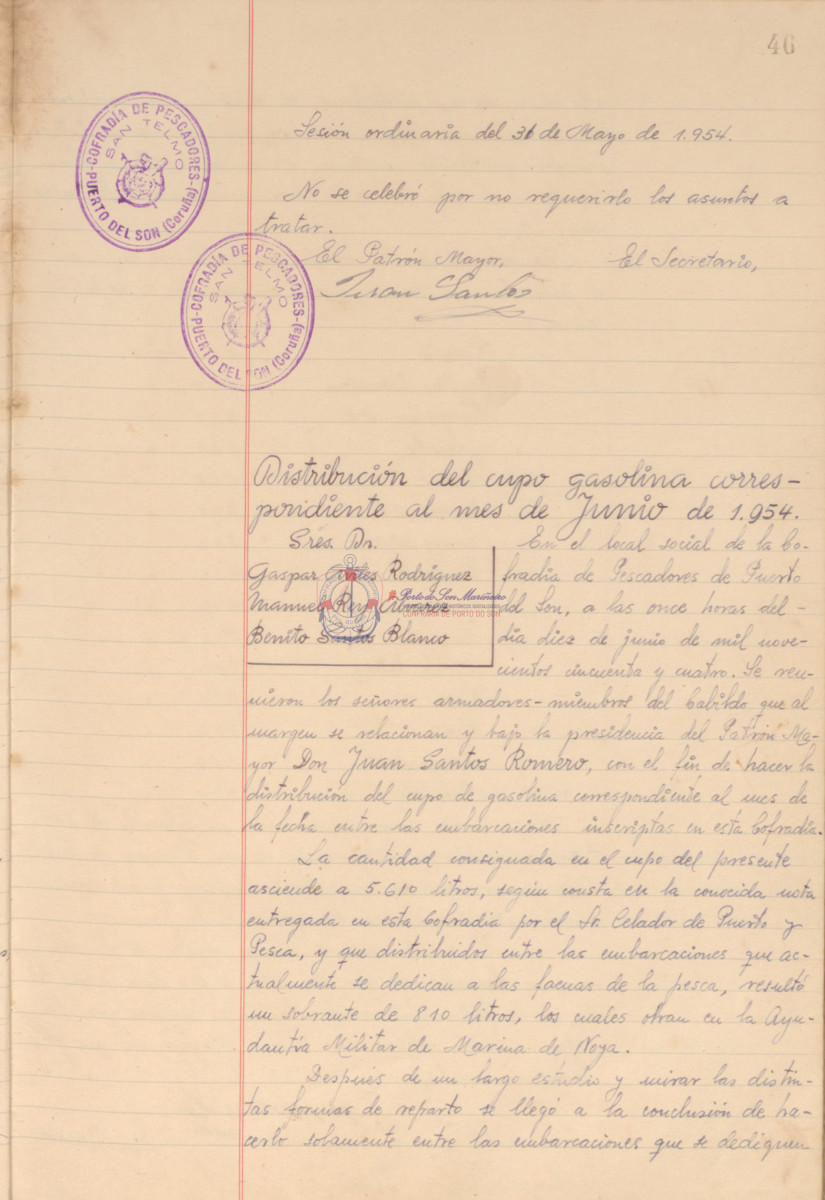 46
COFRADÍA DE PESCADORES
SAN TELMO
PUERTO DEL SON (Coruña)
Sesión ordinaria del 31 de Mayo de 1.954.
No se celebró por no requerirlo los asuntos a
tratar.
El Patrón Mayor, El Secretario,
Juan Santos
COFRADÍA DE PESCADORES
SAN TELMO
PUERTO DEL SON (Coruña)
Distribución del cupo gasolina corres-
pondiente al mes de Junio de 1.954.
Sres. Dn.
Gaspar Rodríguez
Manuel Rey Alvarez
Benito Santos Blanco
Porto do Son Mariñeiro
CONFRARÍA DE PORTO DO SON
En el local social de la Co-
fradía de Pescadores de Puerto
del Son, a las once horas del-
día diez de junio de mil nove-
cientos cincuenta y cuatro. Se reu-
nieron los señores armadores-miembros del Cabildo que al
margen se relacionan y bajo la presidencia del Patrón Ma-
yor Don Juan Santos Romero, con el fin de hacer la
distribución del cupo de gasolina correspondiente al mes de
la fecha entre las embarcaciones inscriptas en esta Cofradía.
La cantidad consignada en el cupo del presente
asciende a 5.610 litros, según consta en la conocida nota
entregada en esta Cofradía por el Sr. Celador de Puerto y
Pesca, y que distribuidos entre las embarcaciones que ac-
tualmente se dedican a las faenas de la pesca, resultó
un sobrante de 810 litros, los cuales obran en la Ayu-
dantía Militar de Marina de Noya.
Después de un largo estudio y mirar las distin-
tas formas de reparto se llegó a la conclusión de ha-
cerlo solamente entre las embarcaciones que se dediquen